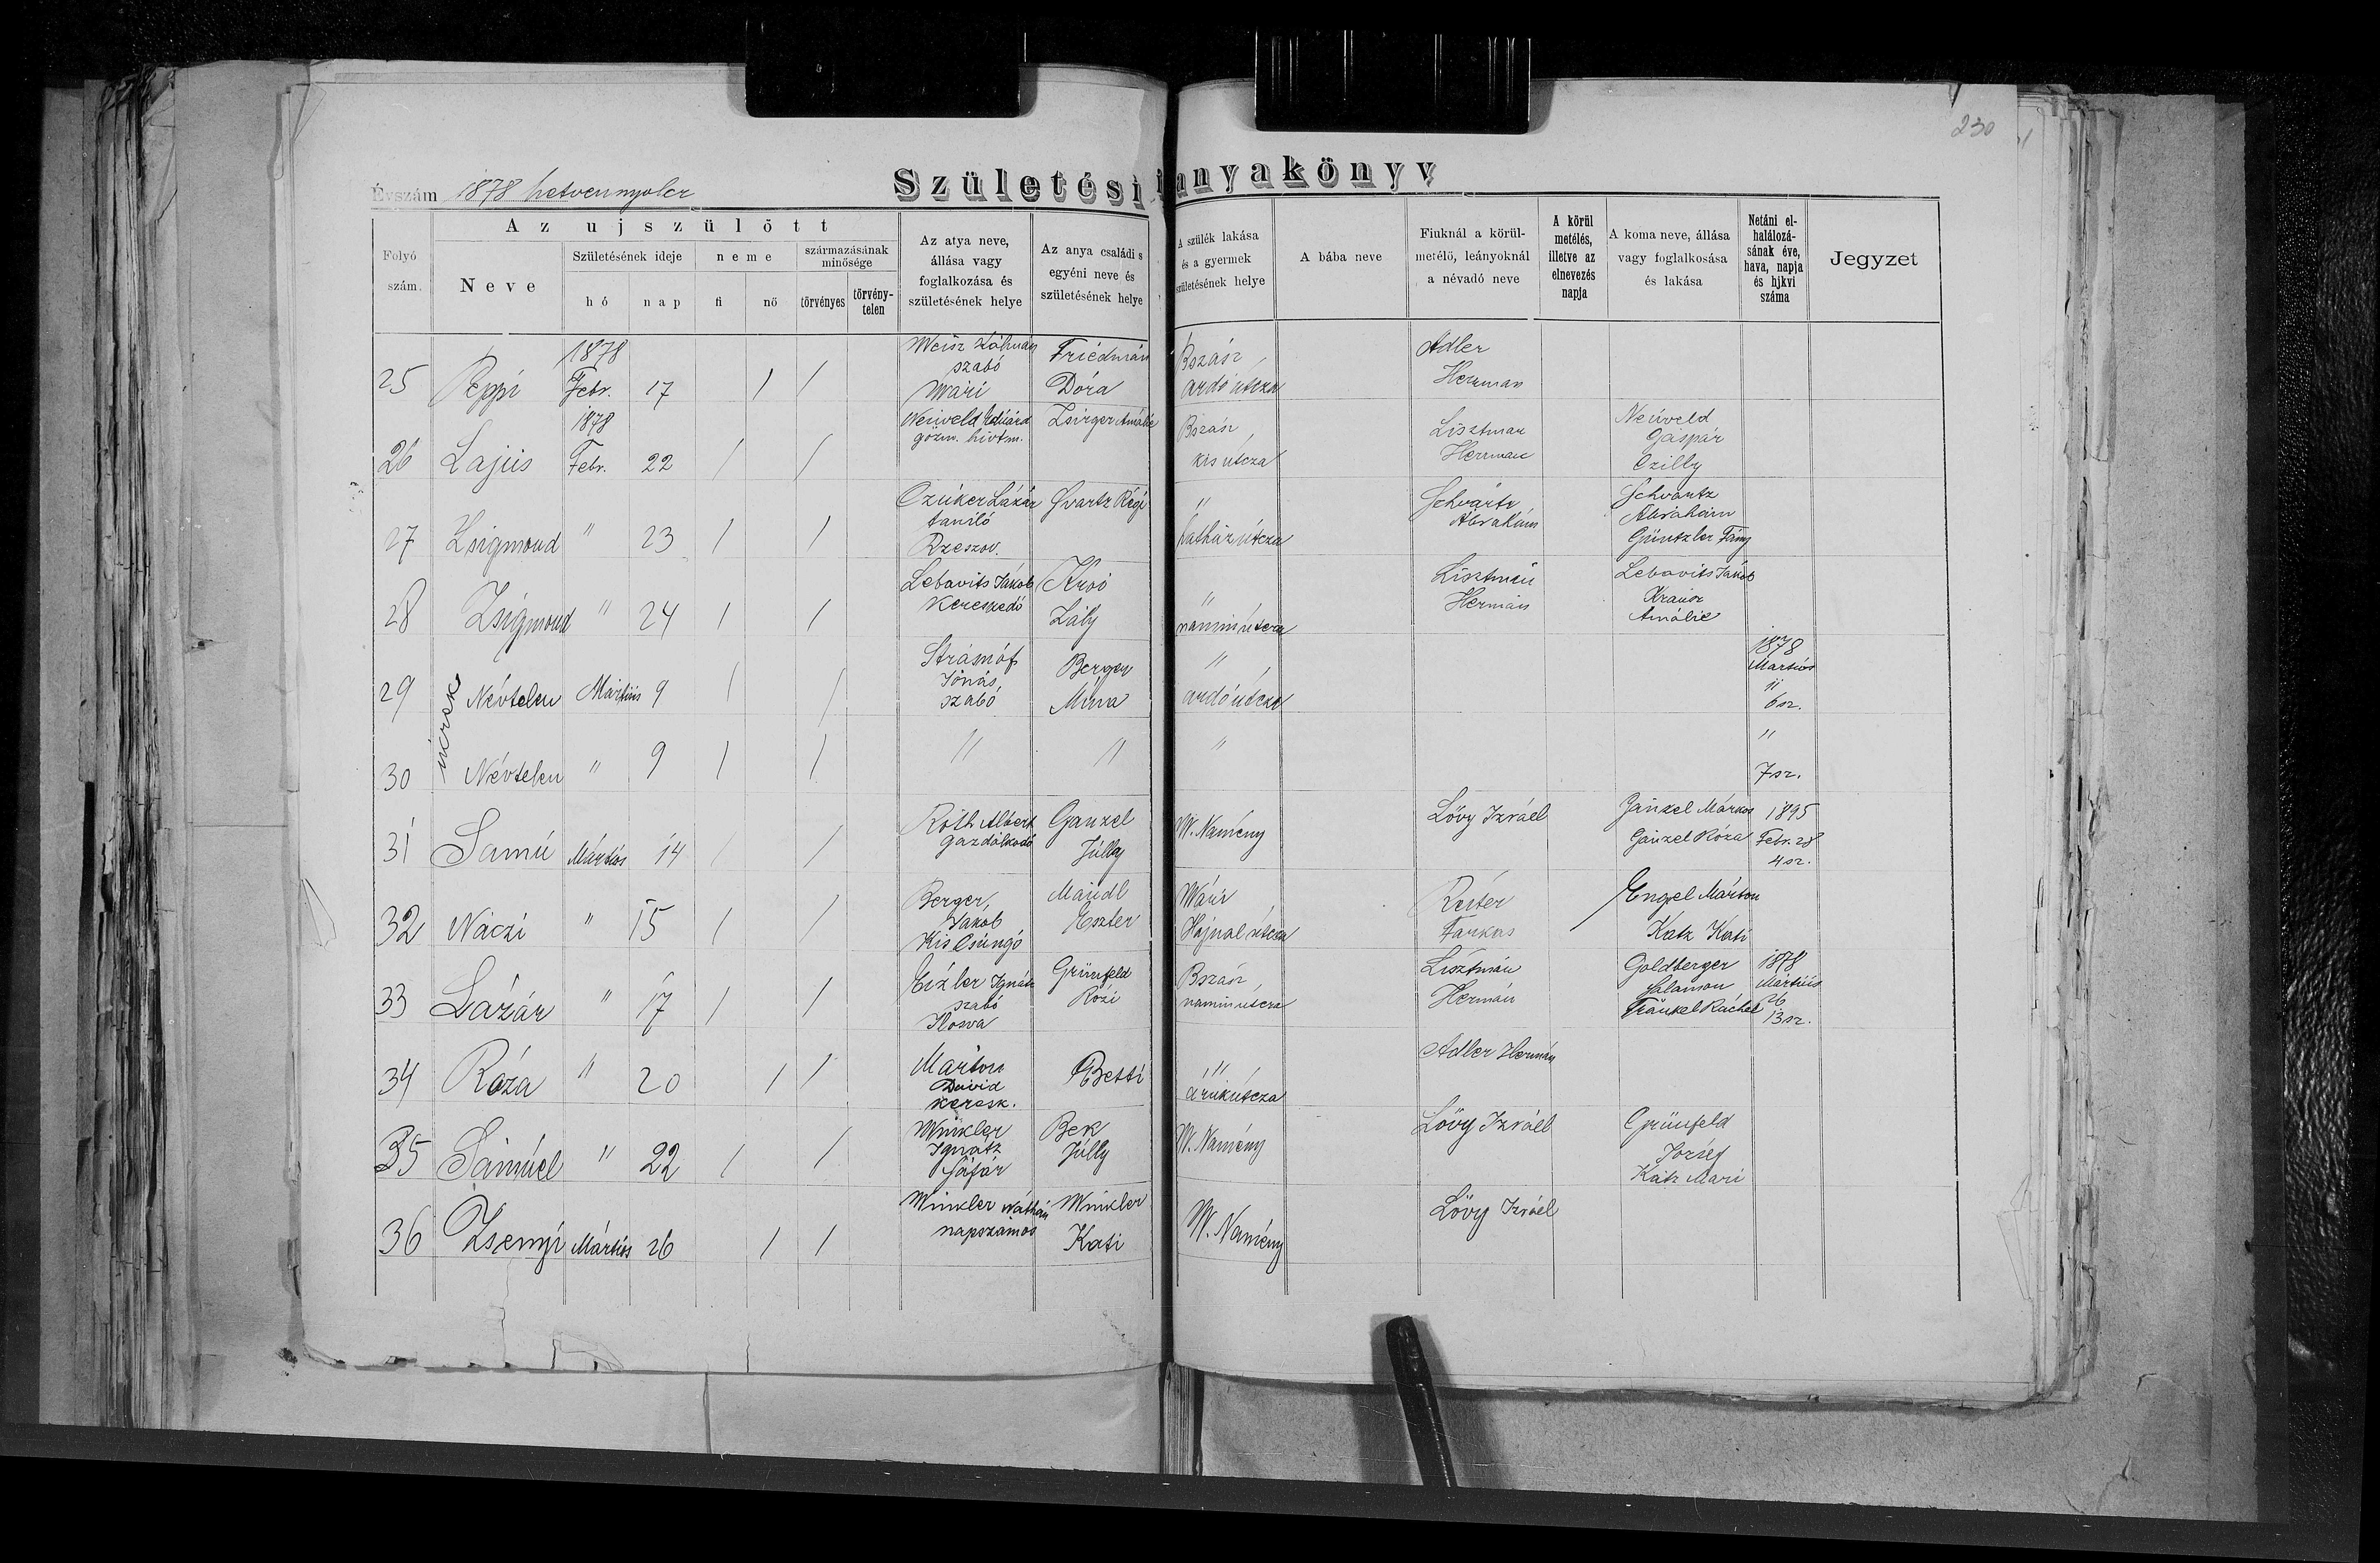 230
Születési anyakönyv
Évszám 1878 hetvennyolcz
Az ujszülött
Folyó szám.
Neve
Születésének ideje
hó
nap
neme
fi
nő
származásának minősége
törvényes
törvénytelen
Az atya neve, állása vagy foglalkozása és születésének helye
Az anya családi s egyéni neve és születésének helye
A szülék lakása és a gyermek születésének helye
A bába neve
Fiuknál a körülmetélő, leányoknál a névadó neve
A körülmetélés, illetve az elnevezés napja
A koma neve, állása vagy foglalkosása és lakása
Netáni elhalálozásának éve, hava, napja és hjkvi száma
Jegyzet
25 Peppi 1878 Febr. 17 / / Weisz Kálmán szabó Friedmán Dóra Bszász ardó útcza Adler Herrman
26 Lajús 1878 Febr. 22 / / Neúveld Edúárd gőzm. Amália Bszász kis útcza Lisztman Herrman Neúveld Gáspár Czilly
27 Zsigmond " 23 / / Czúker Lázár tanító Rzeszov. Svartz Régi " Schvartz Ábrahám Schvartz Ábrahám Güntzler Fány
28 Zsigmond " 24 / / Lebovits Jákob Kereskedő Zály " namini útcza Lisztmán Hermán Lebovits Jákob Krausz Amália
ikrek
29 Névtelen Mártiús 9 / / Jónás szabó Berger Mina " ardó útcza 1878 Martiús 11 6 sz.
30 Névtelen " 9 / / " " " " 7 sz.
31 Samú Mártiús 14 / / Róth Albert gazdálkodó Ganzel Júlly W. Namény Lövy Izráel Gánzel Márkus Gánzel Róza 1895 Febr. 28 4 sz.
32 Náczi " 15 / / Berger, Jakob Kis Csúngó Maúdl Eszter Wári Hajnal útcza Reiter Farkas Engel Márton Katz Kati
33 Lázár " 17 / / Eizler Ignátz szabó Ilosva Grünfeld Rózi Bszász namini útcza Lisztmán Hermán Goldberger Salamon Fränkel Ráchel 1878 Mártiús 26 13 sz.
34 Róza " 20 / / Márton Dávid keresk. Betti " árúk útcza Adler Hermán
35 Sámúel " 22 / / Winkler Ignátz Sáfár Bek Júlly W. Namény Lövy Izráel Grünfeld József Katz Mari
36 Zsenyi Mártiús 26 / / Winkler Náthán napszámos Winkler Kati W. Namény Lövy Izráel